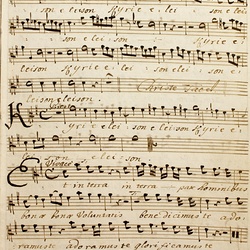 sone lei
son e leison Kyrie e lei
leison Kyrie e lei son e lei son e
Christe Tacet
leison e leison.
Kyrie e lei son e leison Kyrie e
lei son e lei son
Et in terra in terra pax hominibus
bonae bonae Voluntatis benedicimus te ado
ramus te adoramus te glorificamus te